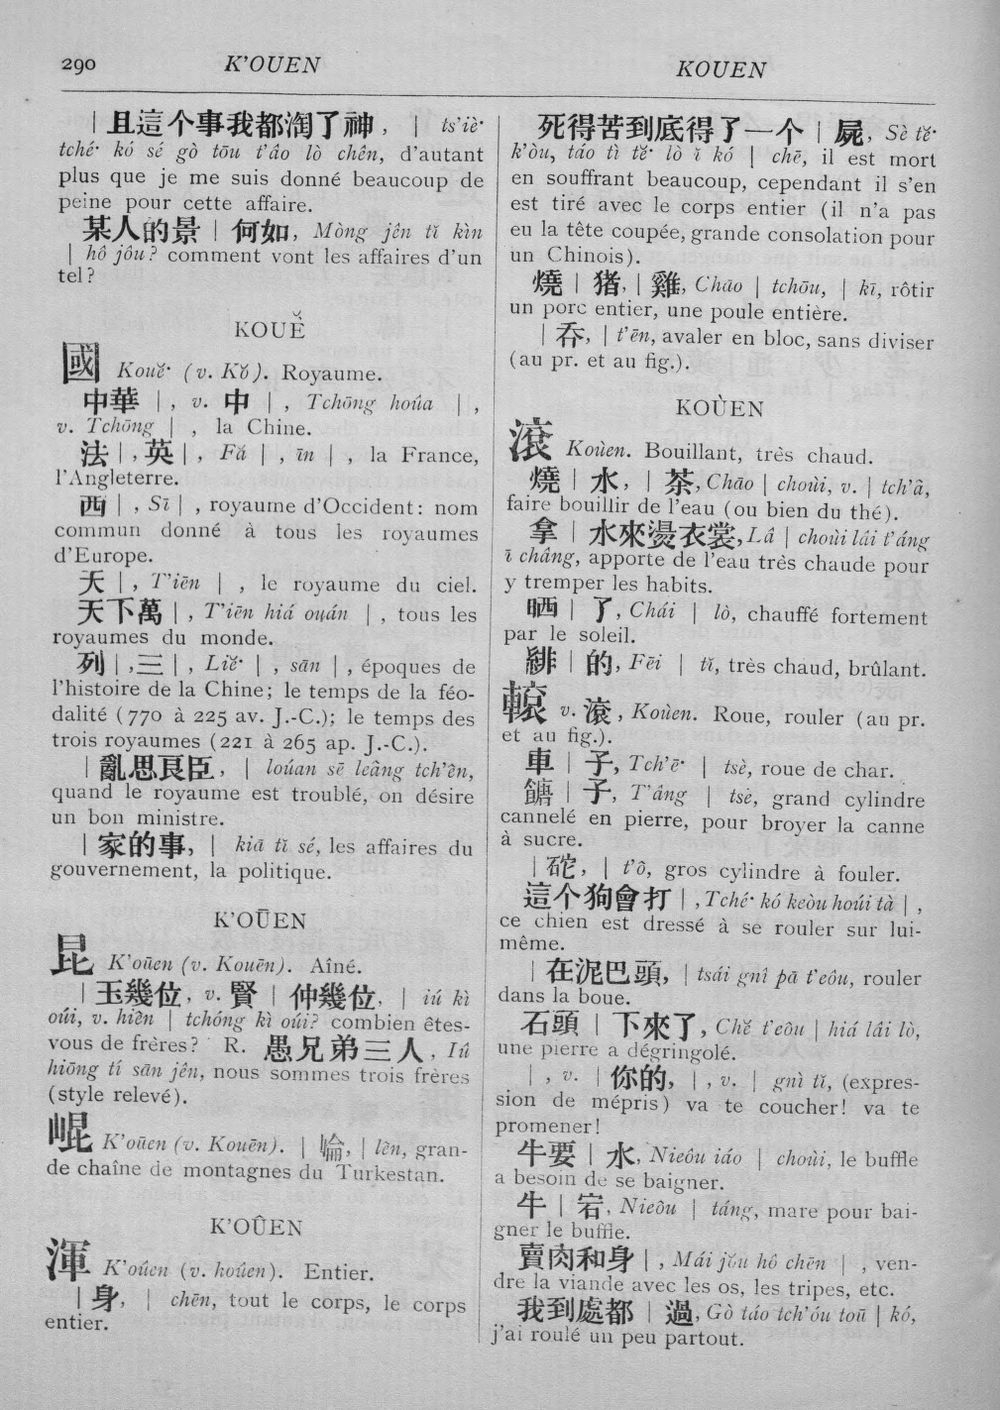 290
K'OUEN
KOUEN
| 且這个事我都淘了神, | ts'iè·
tché· kó sé gò tōu t'âo lò chên, d'autant
plus que je me suis donné beaucoup de
peine pour cette affaire.
某人的景 | 何如, Mòng jên tĭ kìn
| hô jôu? comment vont les affaires d'un
tel?
KOUĔ̀
國 Kouĕ· (v. Kŏ). Royaume.
中華 | , v. 中 | , Tchōng hoûa | ,
v. Tchōng | , la Chine.
法 | , 英 | , Fă | , īn | , la France,
l'Angleterre.
西 | , Sī | , royaume d'Occident: nom
commun donné à tous les royaumes
d'Europe.
天 | , T'iēn | , le royaume du ciel.
天下萬 | , T'iēn hiá ouán | , tous les
royaumes du monde.
列 | , 三 | , Liĕ· | , sān | , époques de
l'histoire de la Chine; le temps de la féo-
dalité (770 à 225 av. J.-C.); le temps des
trois royaumes (221 à 265 ap. J.-C.).
| 亂思良臣, | loúan sē leâng tch'ên,
quand le royaume est troublé, on désire
un bon ministre.
| 家的事, | kiā tĭ sé, les affaires du
gouvernement, la politique.
K'OŪEN
昆 K'oūen (v. Kouēn). Aîné.
| 玉幾位, v. 賢 | 仲幾位, | iú kì
oúi, v. hiên | tchóng kì oúi? combien êtes-
vous de frères? R. 愚兄弟三人, Iû
hiōng tí sān jên, nous sommes trois frères
(style relevé).
崐 K'oūen (v. Kouēn). | 崘, | lên, gran-
de chaîne de montagnes du Turkestan.
K'OÛEN
渾 K'oûen (v. hoûen). Entier.
| 身, | chēn, tout le corps, le corps
entier.
死得苦到底得了一个 | 屍, Sè tĕ·
k'òu, táo tì tĕ· lò ĭ kó | chē, il est mort
en souffrant beaucoup, cependant il s'en
est tiré avec le corps entier (il n'a pas
eu la tête coupée, grande consolation pour
un Chinois).
燒 | 猪, | 雞, Chāo | tchōu, | kī, rôtir
un porc entier, une poule entière.
| 吞, | t'ēn, avaler en bloc, sans diviser
(au pr. et au fig.).
KOÙEN
滾 Koùen. Bouillant, très chaud.
燒 | 水, | 茶, Chāo | choùi, v. | tch'â,
faire bouillir de l'eau (ou bien du thé).
拿 | 水來燙衣裳, Lâ | choùi lâi t'áng
ī châng, apporte de l'eau très chaude pour
y tremper les habits.
晒 | 了, Chái | lò, chauffé fortement
par le soleil.
緋 | 的, Fēi | tĭ, très chaud, brûlant.
輥 v. 滾, Koùen. Roue, rouler (au pr.
et au fig.).
車 | 子, Tch'ē· | tsè, roue de char.
餹 | 子, T'âng | tsè, grand cylindre
cannelé en pierre, pour broyer la canne
à sucre.
| 砣, | t'ô, gros cylindre à fouler.
這个狗會打 | , Tché· kó keòu hoúi tà | ,
ce chien est dressé à se rouler sur lui-
même.
| 在泥巴頭, | tsái gnî pā t'eôu, rouler
dans la boue.
石頭 | 下來了, Chĕ t'eôu | hiá lâi lò,
une pierre a dégringolé.
| , v. | 你的, | , v. | gnì tĭ, (expres-
sion de mépris) va te coucher! va te
promener!
牛要 | 水, Nieôu iáo | choùi, le buffle
a besoin de se baigner.
牛 | 宕, Nieôu | táng, mare pour bai-
gner le buffle.
賣肉和身 | , Mái jŏu hô chēn | , ven-
dre la viande avec les os, les tripes, etc.
我到處都 | 過, Gò táo tch'óu toū | kó,
j'ai roulé un peu partout.